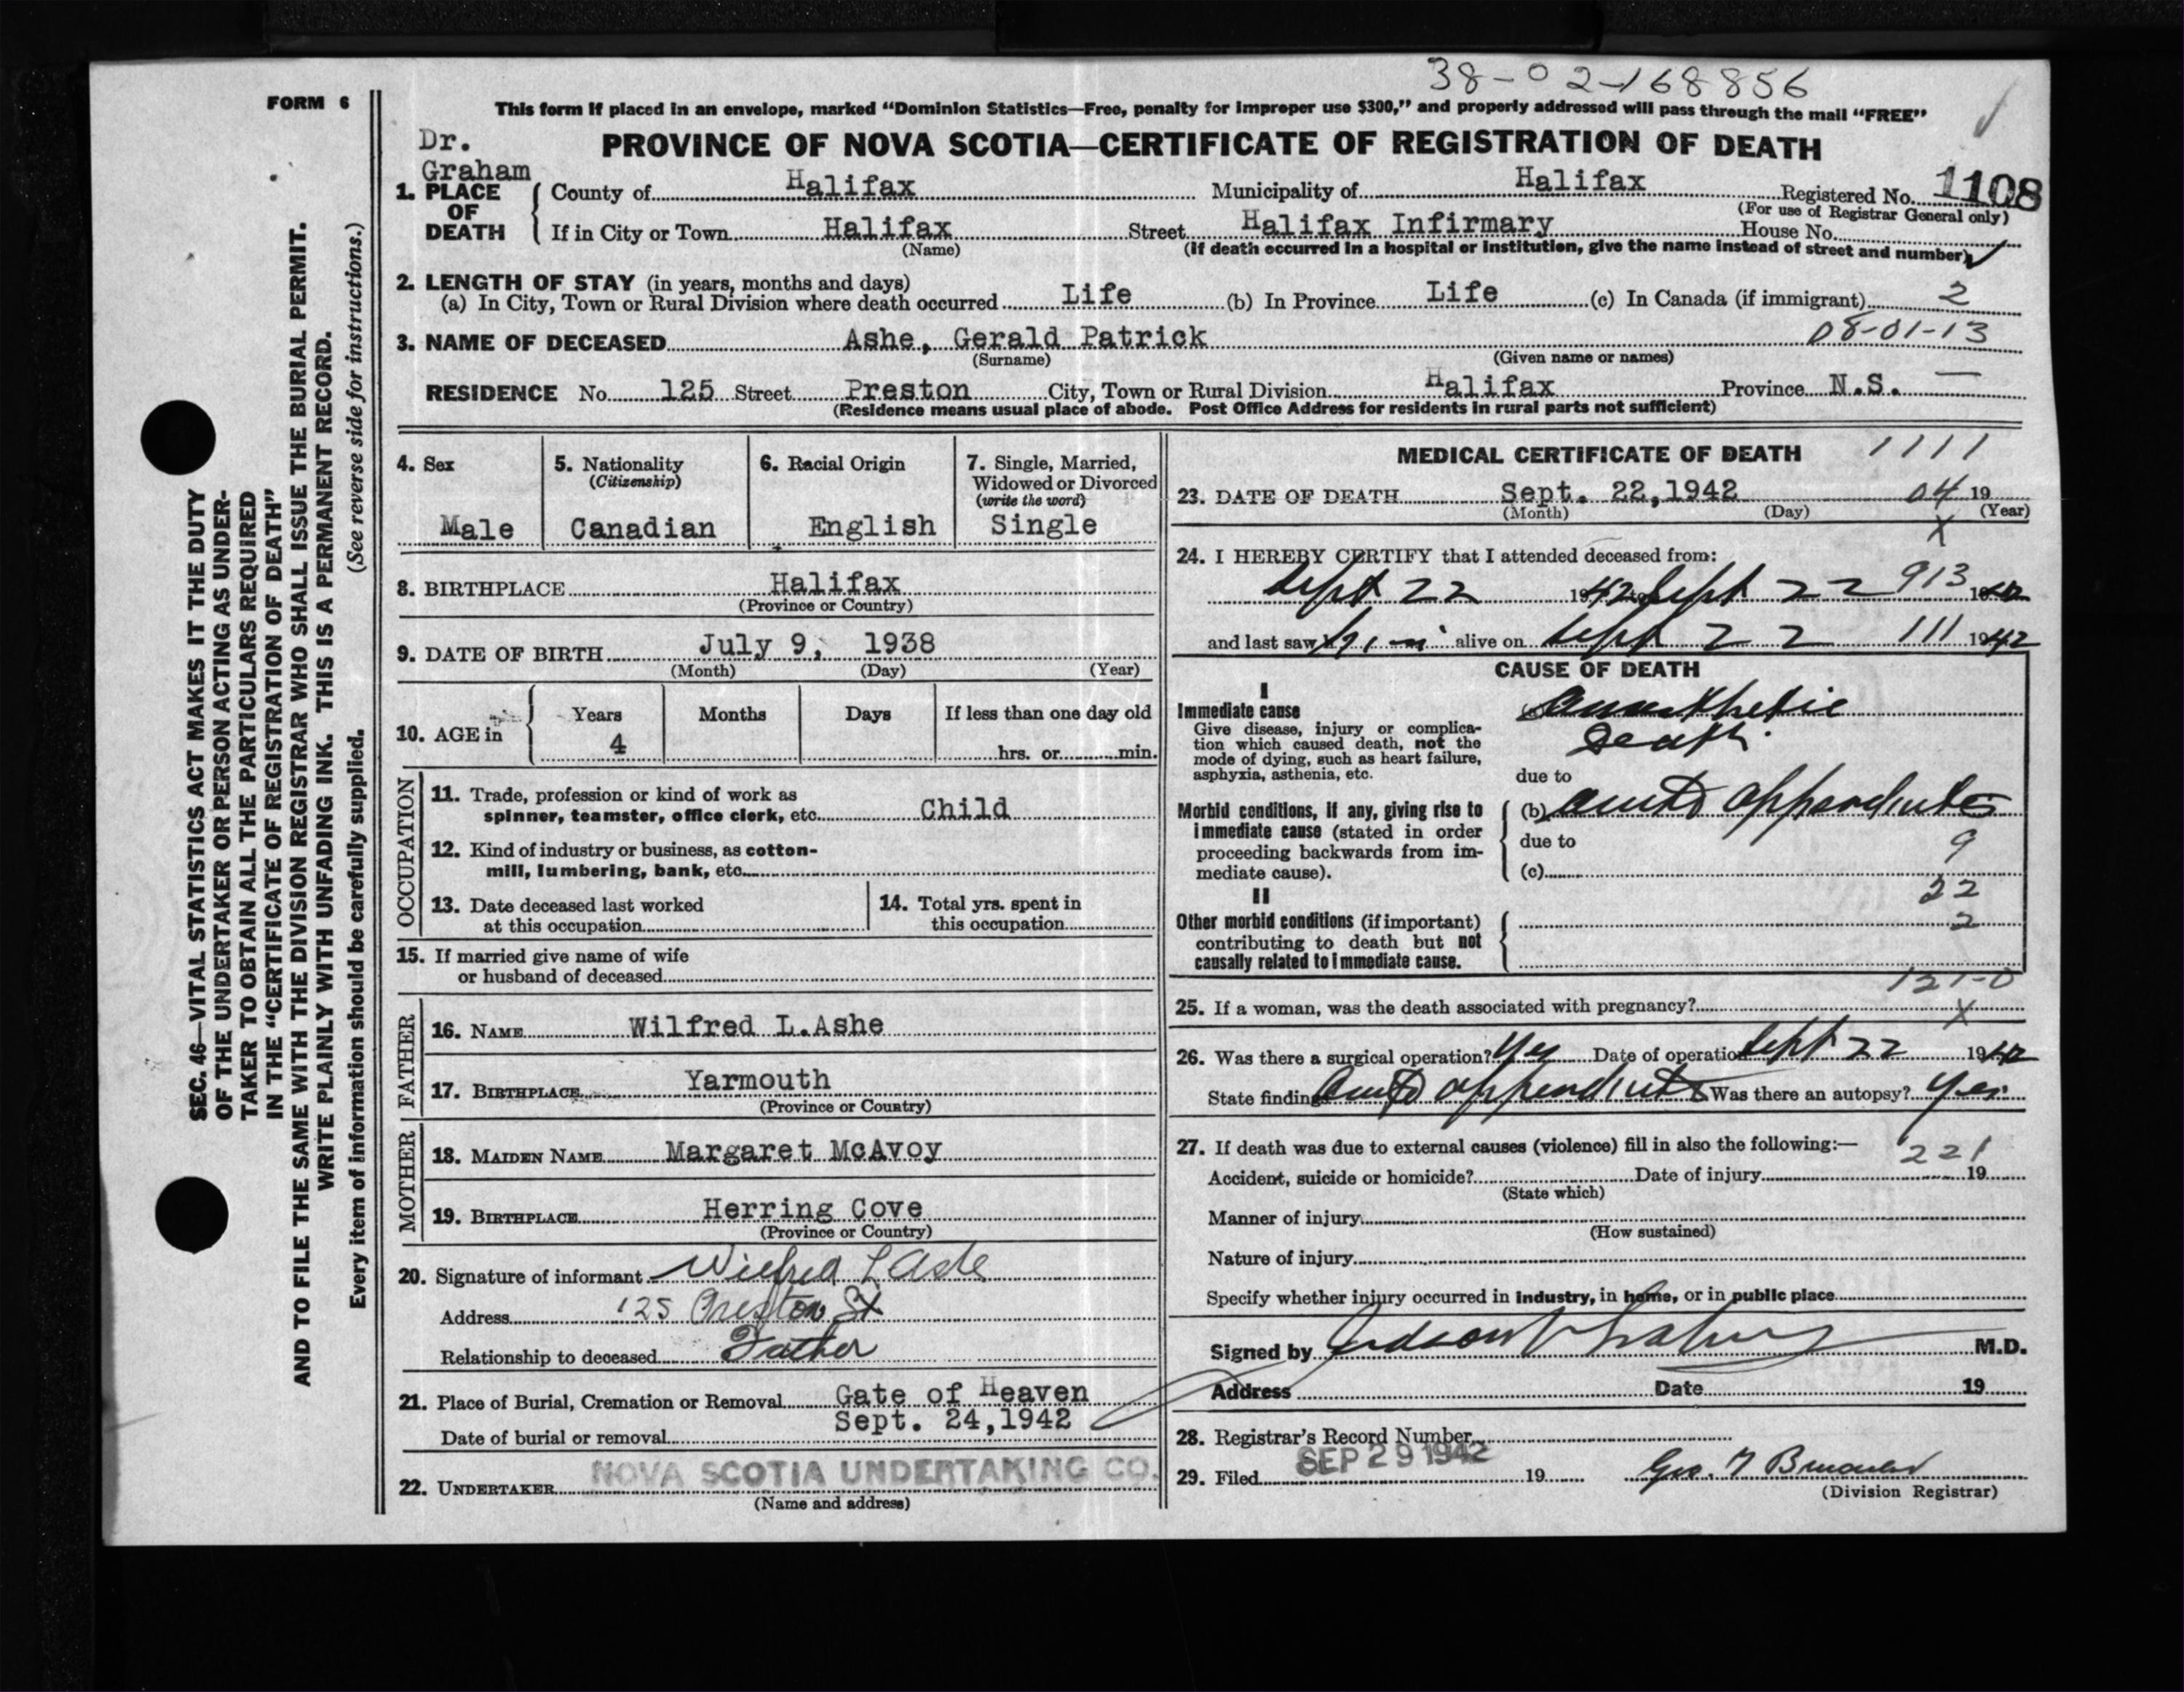 38-02-168856
FORM 6
This form if placed in an envelope, marked “Dominion Statistics—Free, penalty for improper use $300,” and properly addressed will pass through the mail “FREE”
Dr.
Graham
PROVINCE OF NOVA SCOTIA—CERTIFICATE OF REGISTRATION OF DEATH
1. PLACE OF DEATH
County of Halifax Municipality of Halifax Registered No. 1108
(For use of Registrar General only)
If in City or Town Halifax Street Halifax Infirmary House No.
(Name) (If death occurred in a hospital or institution, give the name instead of street and number)
2. LENGTH OF STAY (in years, months and days)
(a) In City, Town or Rural Division where death occurred Life (b) In Province Life (c) In Canada (if immigrant) 2
08-01-13
3. NAME OF DECEASED Ashe, Gerald Patrick
(Surname) (Given name or names)
RESIDENCE No. 125 Street Preston City, Town or Rural Division Halifax Province N.S. —
(Residence means usual place of abode. Post Office Address for residents in rural parts not sufficient)
4. Sex
Male
5. Nationality
(Citizenship)
Canadian
6. Racial Origin
English
7. Single, Married,
Widowed or Divorced
(write the word)
Single
8. BIRTHPLACE Halifax
(Province or Country)
9. DATE OF BIRTH July 9, 1938
(Month) (Day) (Year)
10. AGE in
Years Months Days If less than one day old
4 hrs. or min.
OCCUPATION
11. Trade, profession or kind of work as
spinner, teamster, office clerk, etc. Child
12. Kind of industry or business, as cotton-
mill, lumbering, bank, etc.
13. Date deceased last worked
at this occupation
14. Total yrs. spent in
this occupation
15. If married give name of wife
or husband of deceased
FATHER
16. NAME Wilfred L.Ashe
17. BIRTHPLACE Yarmouth
(Province or Country)
MOTHER
18. MAIDEN NAME Margaret McAvoy
19. BIRTHPLACE Herring Cove
(Province or Country)
20. Signature of informant Wilfred L Ashe
Address 125 Preston St
Relationship to deceased Father
21. Place of Burial, Cremation or Removal Gate of Heaven
Date of burial or removal Sept. 24,1942
22. UNDERTAKER NOVA SCOTIA UNDERTAKING CO.
(Name and address)
MEDICAL CERTIFICATE OF DEATH 1111
23. DATE OF DEATH Sept. 22,1942 04 19
(Month) (Day) (Year)
X
24. I HEREBY CERTIFY that I attended deceased from:
Sept 22 1942 to Sept 22 913 1942
and last saw him alive on Sept 22 111 1942
CAUSE OF DEATH
I
Immediate cause
Give disease, injury or complica-
tion which caused death, not the
mode of dying, such as heart failure,
asphyxia, asthenia, etc.
(a) Anaesthetic
Death.
due to
Morbid conditions, if any, giving rise to
immediate cause (stated in order
proceeding backwards from im-
mediate cause).
(b) acute appendicitis
due to
9
(c)
22
II
Other morbid conditions (if important)
contributing to death but not
causally related to immediate cause.
2
121-0
25. If a woman, was the death associated with pregnancy?
X
26. Was there a surgical operation? Yes Date of operation Sept 22 1942
State findings Acute appendicitis Was there an autopsy? Yes
27. If death was due to external causes (violence) fill in also the following:—
221
Accident, suicide or homicide? Date of injury 19
(State which)
Manner of injury
(How sustained)
Nature of injury
Specify whether injury occurred in industry, in home, or in public place
Signed by Judson V Graham M.D.
Address Date 19
28. Registrar's Record Number
29. Filed SEP 29 1942 19 Geo.
(Division Registrar)
SEC. 46—VITAL STATISTICS ACT MAKES IT THE DUTY
OF THE UNDERTAKER OR PERSON ACTING AS UNDER-
TAKER TO OBTAIN ALL THE PARTICULARS REQUIRED
IN THE “CERTIFICATE OF REGISTRATION OF DEATH”
AND TO FILE THE SAME WITH THE DIVISION REGISTRAR WHO SHALL ISSUE THE BURIAL PERMIT.
WRITE PLAINLY WITH UNFADING INK. THIS IS A PERMANENT RECORD.
Every item of information should be carefully supplied. (See reverse side for instructions.)